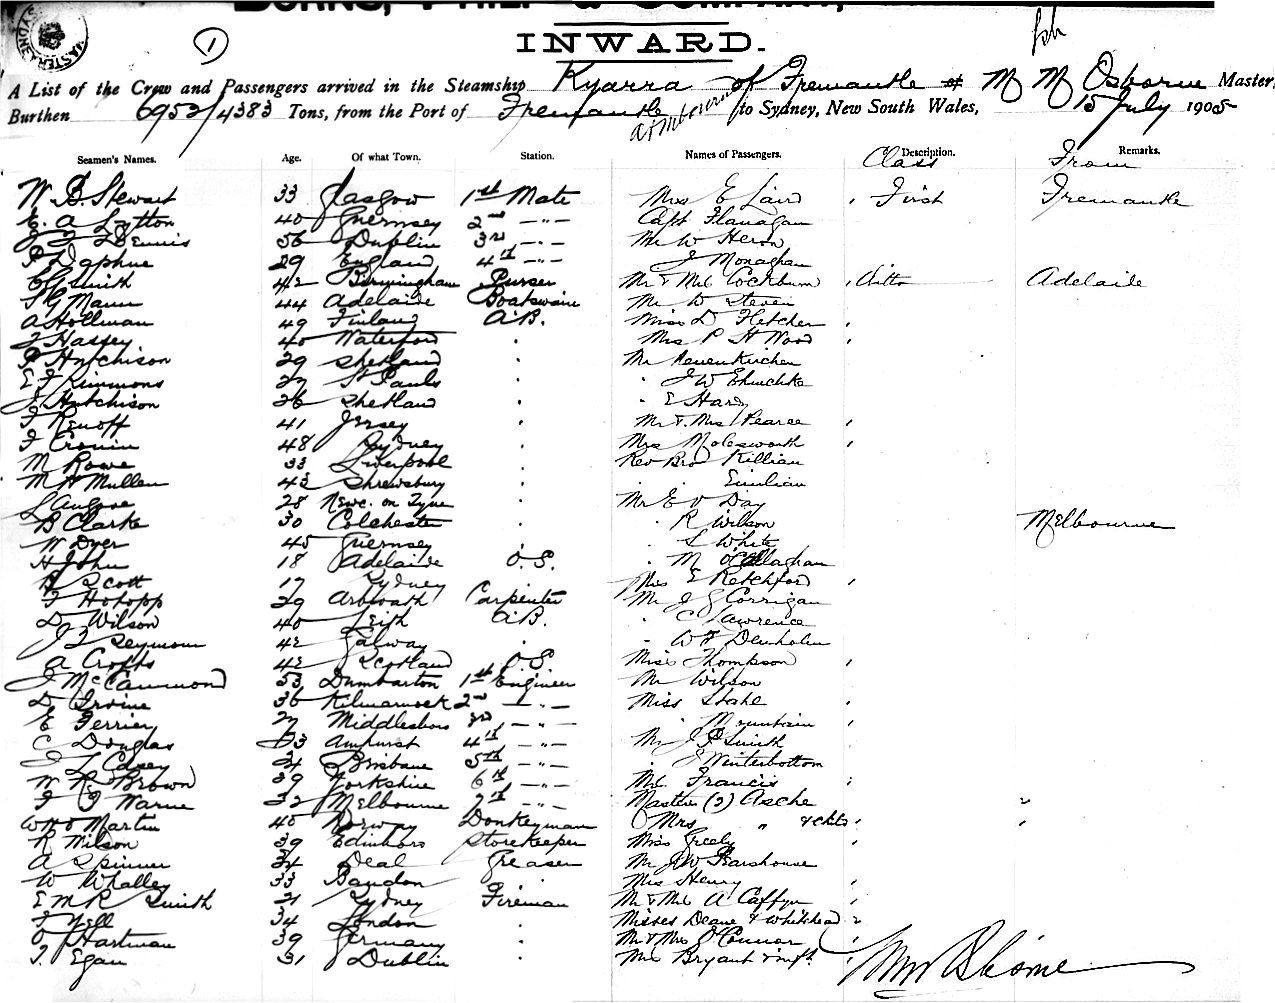 BURNS, PHILP & COMPANY,
SYDNEY
1
INWARD.
A List of the Crew and Passengers arrived in the Steamship Kyarra of Fremantle M M Osborne Master,
Burthen 6953/4383 Tons, from the Port of Fremantle to Sydney, New South Wales, 15 July 1905
Seamen's Names. Age. Of what Town. Station. Names of Passengers. Description. Remarks.
Class From
W B Stewart 33 Glasgow 1st Mate Mrs E Laird First Fremantle
E. A Lytton 40 Guernsey 2nd -"- Capt Flanagan
Dennis 56 Dublin 3rd -"- Mr W Heron
Daphne 29 England 4th -"- J Monaghan
Smith 42 Birmingham Purser Mr & Mrs Cockburn ditto Adelaide
Mann 44 Adelaide Boatswain Mr W Steven
A Hollman 49 Finland A.B. Miss D Fletcher
J Hassey 40 Waterford Mrs P H Wood
Hutchison 29 Shetland Mr Neuenkirchen
Kimmons 27 St Pauls J W
J Hutchison 26 Shetland E Hardy
Renoff 41 Jersey Mr & Mrs Pearce
Cronin 48 Sydney Mrs Molesworth
M Rowe 33 Liverpool Rev Bro Killian
M H Mullen 43 Shrewsbury Emilian
L Angove 28 Newc. on Tyne Mr E V Day
B Clarke 30 Colchester R Wilson Melbourne
W Dyer 45 Guernsey L White
H John 18 Adelaide O.S. M O'Callaghan
Scott 17 Sydney Miss E Retchford
Hotopp 29 Arbroath Carpenter Mr J G Corrigan
D Wilson 40 Leith A.B. C Lawrence
Seymour 42 Galway W F Denholm
A Crofts 42 Scotland O.S. Miss Thompson
J McCammond 53 Dumbarton 1st Engineer Mr Wilson
D Irvine 36 Kilmarnock 2nd -"- Miss Stahl
E Ferrier 27 Middlesboro 3rd -"- Mountain
C Douglas 33 Amhurst 4th -"- Mr J P Smith
Carey 24 Brisbane 5th -"- J Winterbottom
W R Brown 29 Yorkshire 6th -"- Mrs Francis
Warne 32 Melbourne 7th -"- Masters (2) Asche "
Martin 40 Norway Donkeyman Mrs " & child
R Wilson 39 Edinboro Storekeeper Miss Greely
A Spinner 34 Deal Greaser Mr J W Pearshouse
W Whalley 33 Bandon Mrs Henry
E M R Smith 21 Sydney Fireman Mr & Mrs A Caffyn
Yell 34 London Misses Deane & Whitehead
O Hartman 39 Germany Mr & Mrs O'Connor
T. Egan 31 Dublin Mrs Bryant & inft